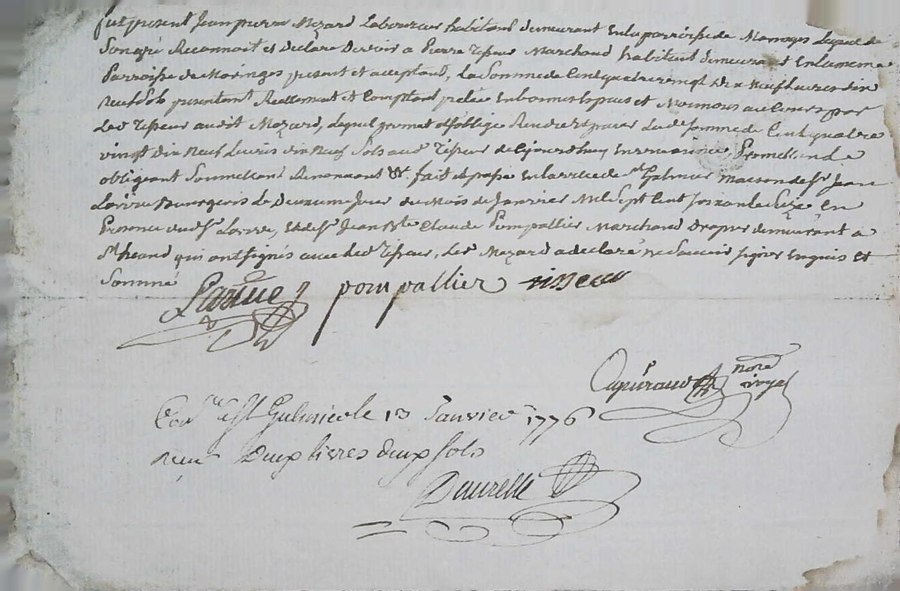 fut present Jean pierre Mozard Laboureur habitant demeurant en la parroisse de Maringes Lequel de
Son gré Reconnoit et declare devoir a Pierre Tisseur Marchand habitant demeurant en la meme
Parroisse de Maringes present et acceptant, la Somme de Cent quatre vingt dix neuf Livres dix
neuf Sols presentement Reellement et Comptant en bonnes Especes et Monnoies au Cours par
Led Tisseur audit Mozard, Lequel promet et s'oblige Rendre et payer Lad Somme de Cent quatre
vingt dix neuf Livres dix neuf Sols aud Tisseur de Cejourdhuy en une année, Promettant
obligeant Soumettant Renonçant &c fait et passé en la ville de St Galmier maison de Sr Jean
Larive Bourgeois Le Jour du Mois de Janvier Mil Sept Cent Soixante Seize En
Presence dud Sr Larive, et de Sr Jean Bte Claude Pompallier Marchand Drapier demeurant a
St heand qui ont signés avec led Tisseur, Led Mozard a declaré ne Savoir signer Enquis et
Sommé
Larive pompallier tisseur
nore
royal
Conlé a St Galmier le 13 Janvier 1776
Reçu Deux livres deux sols